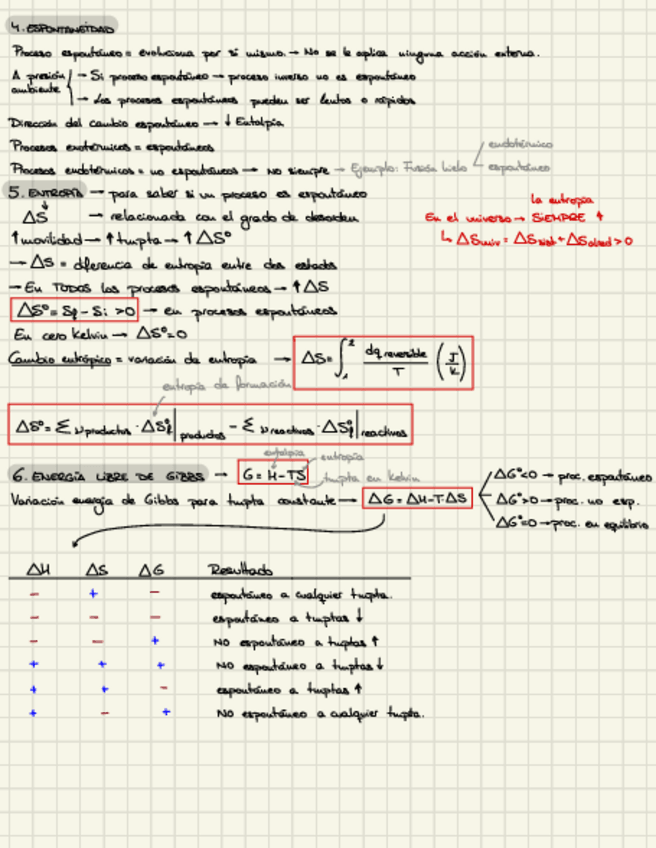 4. ESPONTANEIDAD
Proceso espontáneo = evoluciona por sí mismo. → No se le aplica ninguna acción externa.
A presión ambiente → Si proceso espontáneo → proceso inverso no es espontáneo
→ Los procesos espontáneos pueden ser lentos o rápidos
Dirección del cambio espontáneo → ↓ Entalpía
Procesos exotérmicos = espontáneos
Procesos endotérmicos = no espontáneos → No siempre → Ejemplo: Fusión hielo
endotérmico
espontáneo
5. ENTROPÍA → para saber si un proceso es espontáneo
ΔS → relacionada con el grado de desorden
la entropía
En el universo → SIEMPRE ↑
↳ ΔSuniv = ΔSsist + ΔSalred > 0
↑ movilidad → ↑ tmpta → ↑ ΔS°
→ ΔS = diferencia de entropía entre dos estados
→ En TODOS los procesos espontáneos → ↑ ΔS
ΔS° = Sf - Si > 0 → en procesos espontáneos
En cero Kelvin → ΔS° = 0
Cambio entrópico = variación de entropía → ΔS = ∫₁² dq reversible / T (J/K)
entropía de formación
ΔS° = Σ νproductos · ΔS°f | productos - Σ νreactivos · ΔS°f | reactivos
6. ENERGÍA LIBRE DE GIBBS → G = H - TS
entalpía
entropía
tmpta en kelvin
Variación energía de Gibbs para tmpta constante → ΔG = ΔH - T·ΔS
ΔG° < 0 → proc. espontáneo
ΔG° > 0 → proc. no esp.
ΔG° = 0 → proc. en equilibrio
ΔH ΔS ΔG Resultado
- + - espontáneo a cualquier tmpta.
- - - espontáneo a tmptas ↓
- - + NO espontáneo a tmptas ↑
+ + + NO espontáneo a tmptas ↓
+ + - espontáneo a tmptas ↑
+ - + NO espontáneo a cualquier tmpta.